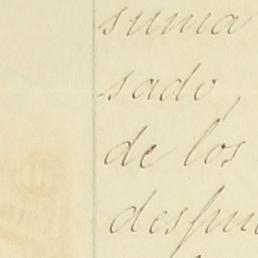 suma
sado,
de los
despu